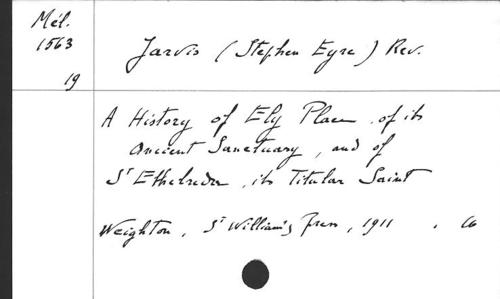 Mél.
1563
19
Jarvis (Stephen Eyre) Rev.
A History of Ely Place, of its
Ancient Sanctuary, and of
St Ethelreda, its Titular Saint
Weighton, St William's Press, 1911.